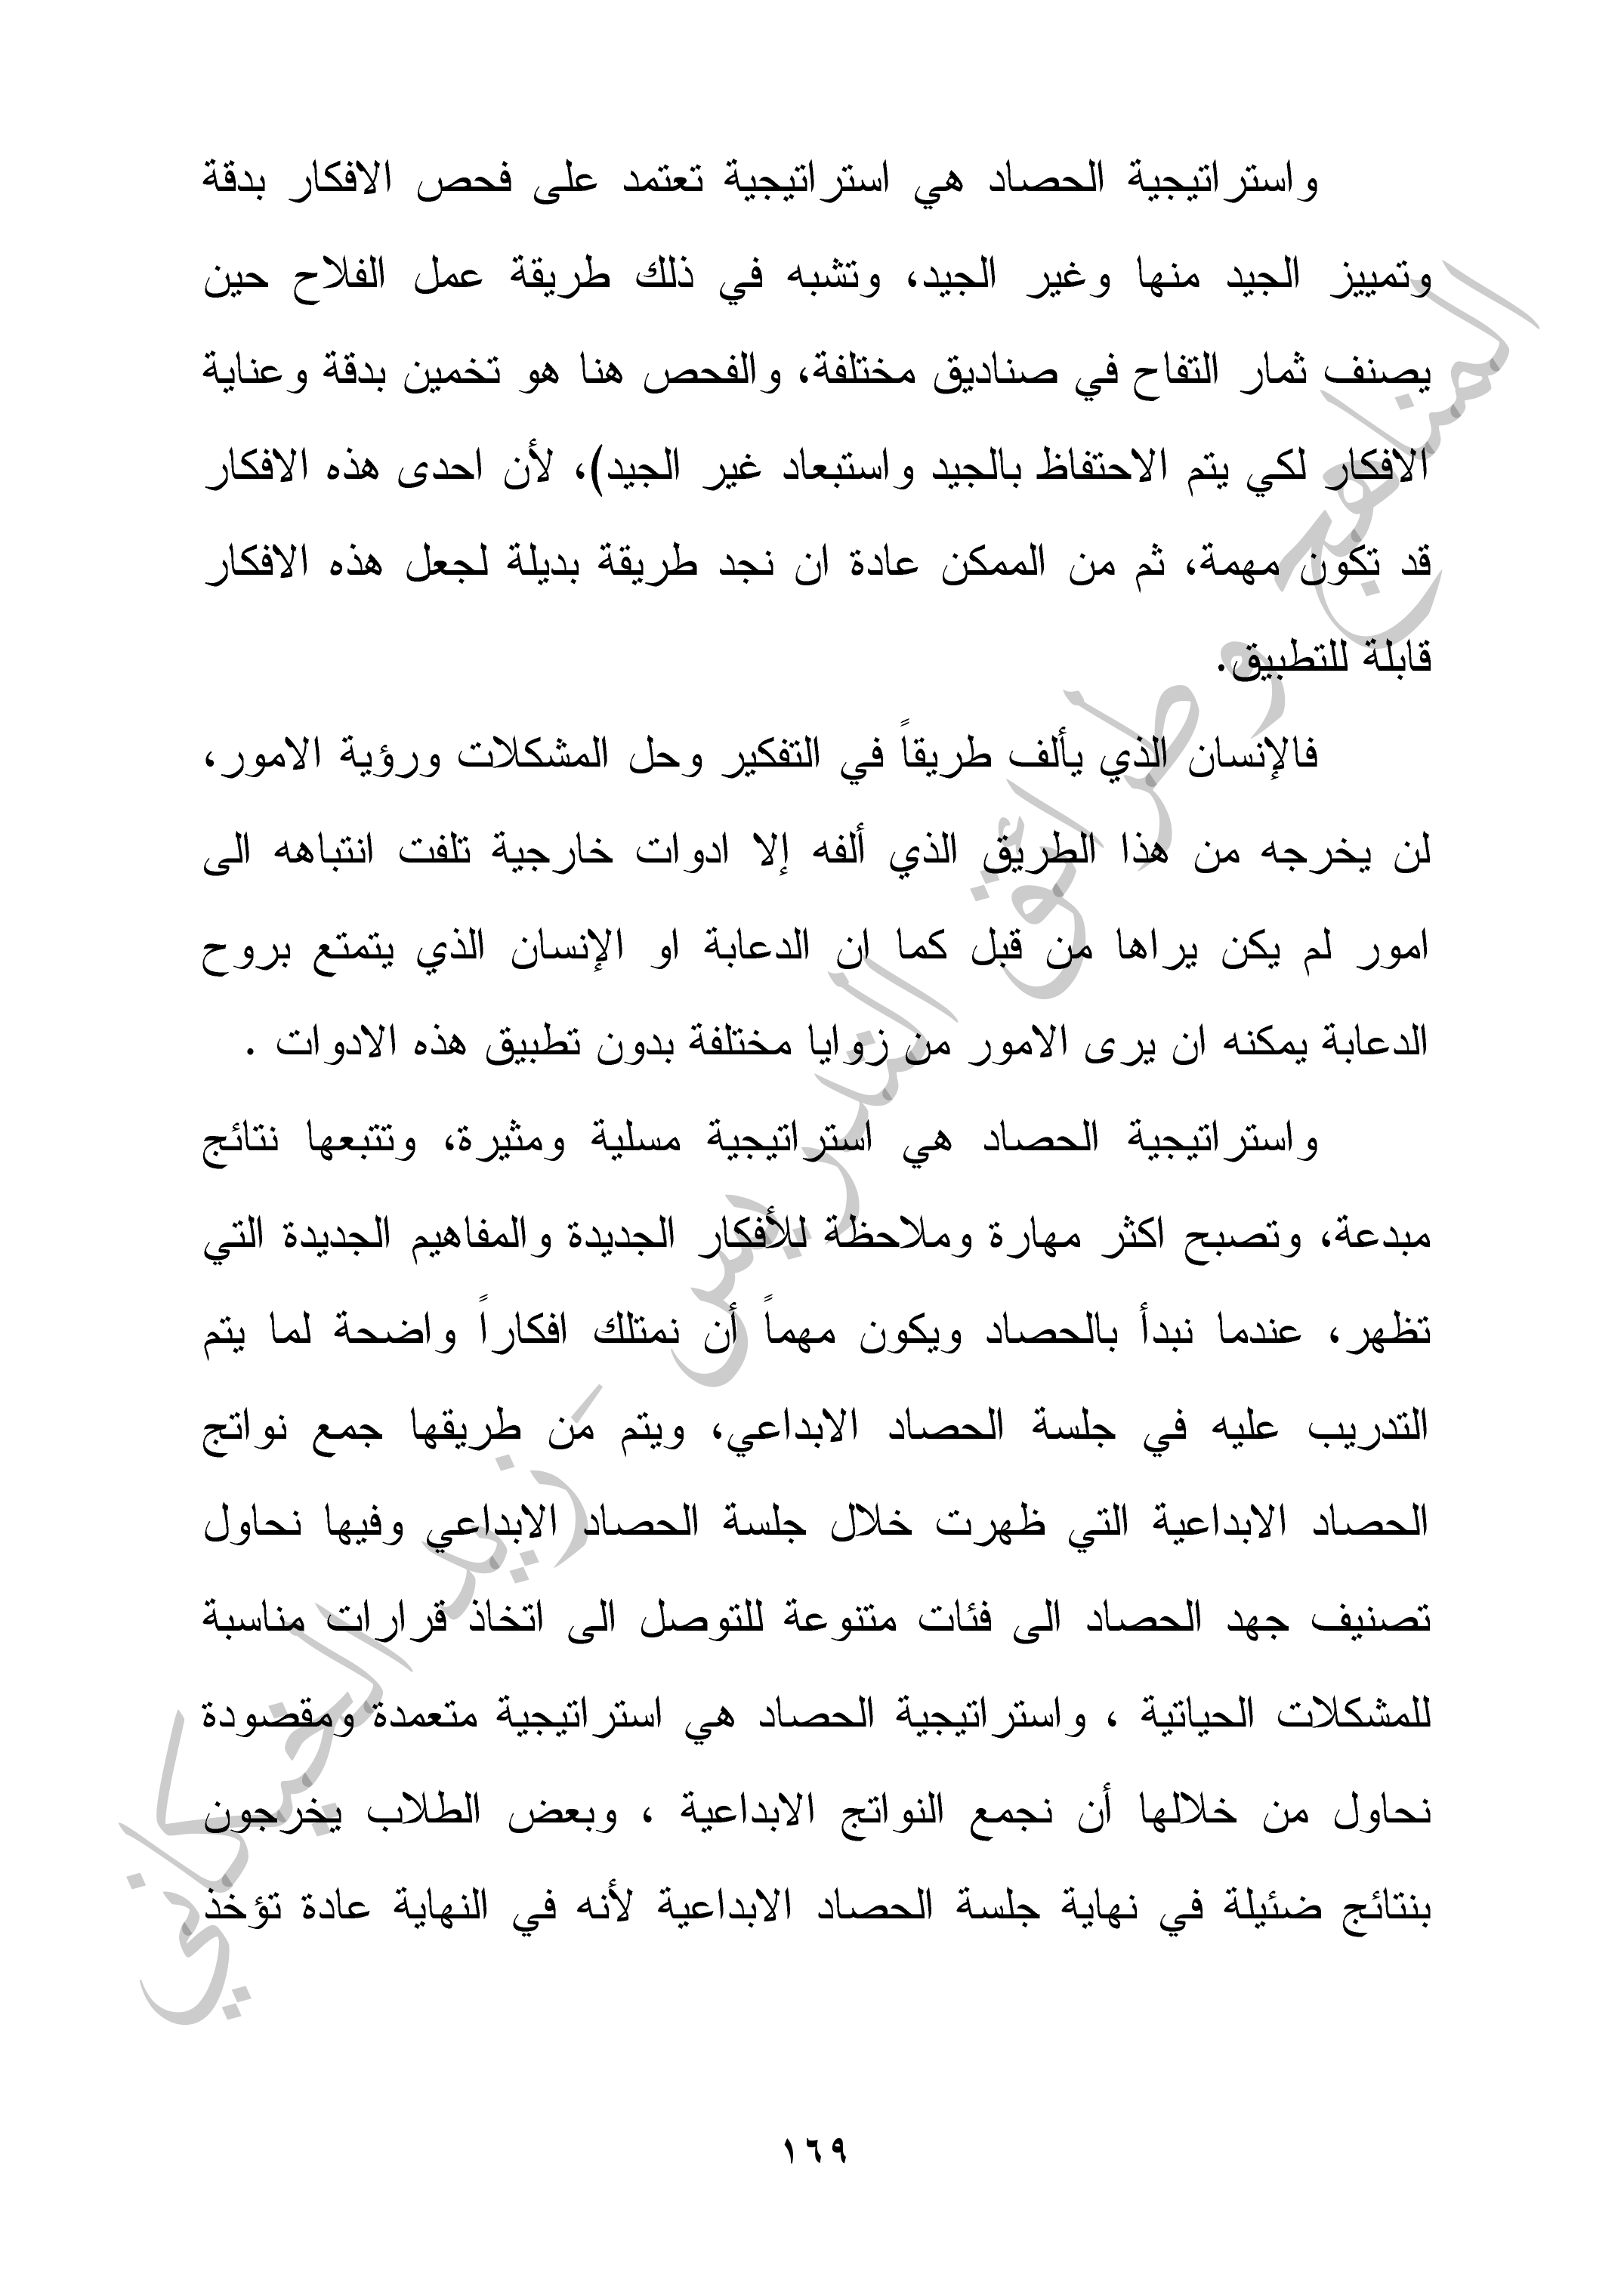 واستراتيجية الحصاد هي استراتيجية تعتمد على فحص الافكار بدقة
وتمييز الجيد منها وغير الجيد، وتشبه في ذلك طريقة عمل الفلاح حين
يصنف ثمار التفاح في صناديق مختلفة، والفحص هنا هو تخمين بدقة وعناية
الافكار لكي يتم الاحتفاظ بالجيد واستبعاد غير الجيد)، لأن احدى هذه الافكار
قد تكون مهمة، ثم من الممكن عادة ان نجد طريقة بديلة لجعل هذه الافكار
قابلة للتطبيق.
فالإنسان الذي يألف طريقاً في التفكير وحل المشكلات ورؤية الامور،
لن يخرجه من هذا الطريق الذي ألفه إلا ادوات خارجية تلفت انتباهه الى
امور لم يكن يراها من قبل كما ان الدعابة او الإنسان الذي يتمتع بروح
الدعابة يمكنه ان يرى الامور من زوايا مختلفة بدون تطبيق هذه الادوات .
واستراتيجية الحصاد هي استراتيجية مسلية ومثيرة، وتتبعها نتائج
مبدعة، وتصبح اكثر مهارة وملاحظة للأفكار الجديدة والمفاهيم الجديدة التي
تظهر، عندما نبدأ بالحصاد ويكون مهماً أن نمتلك افكاراً واضحة لما يتم
التدريب عليه في جلسة الحصاد الابداعي، ويتم من طريقها جمع نواتج
الحصاد الابداعية التي ظهرت خلال جلسة الحصاد الابداعي وفيها نحاول
تصنيف جهد الحصاد الى فئات متنوعة للتوصل الى اتخاذ قرارات مناسبة
للمشكلات الحياتية ، واستراتيجية الحصاد هي استراتيجية متعمدة ومقضودة
نحاول من خلالها أن نجمع النواتج الابداعية ، وبعض الطلاب يخرجون
بنتائج ضئيلة في نهاية جلسة الحصاد الابداعية لأنه في النهاية عادة تؤخذ
المناهج وطرائق التدريس - زيد الخيكاني
١٦٩